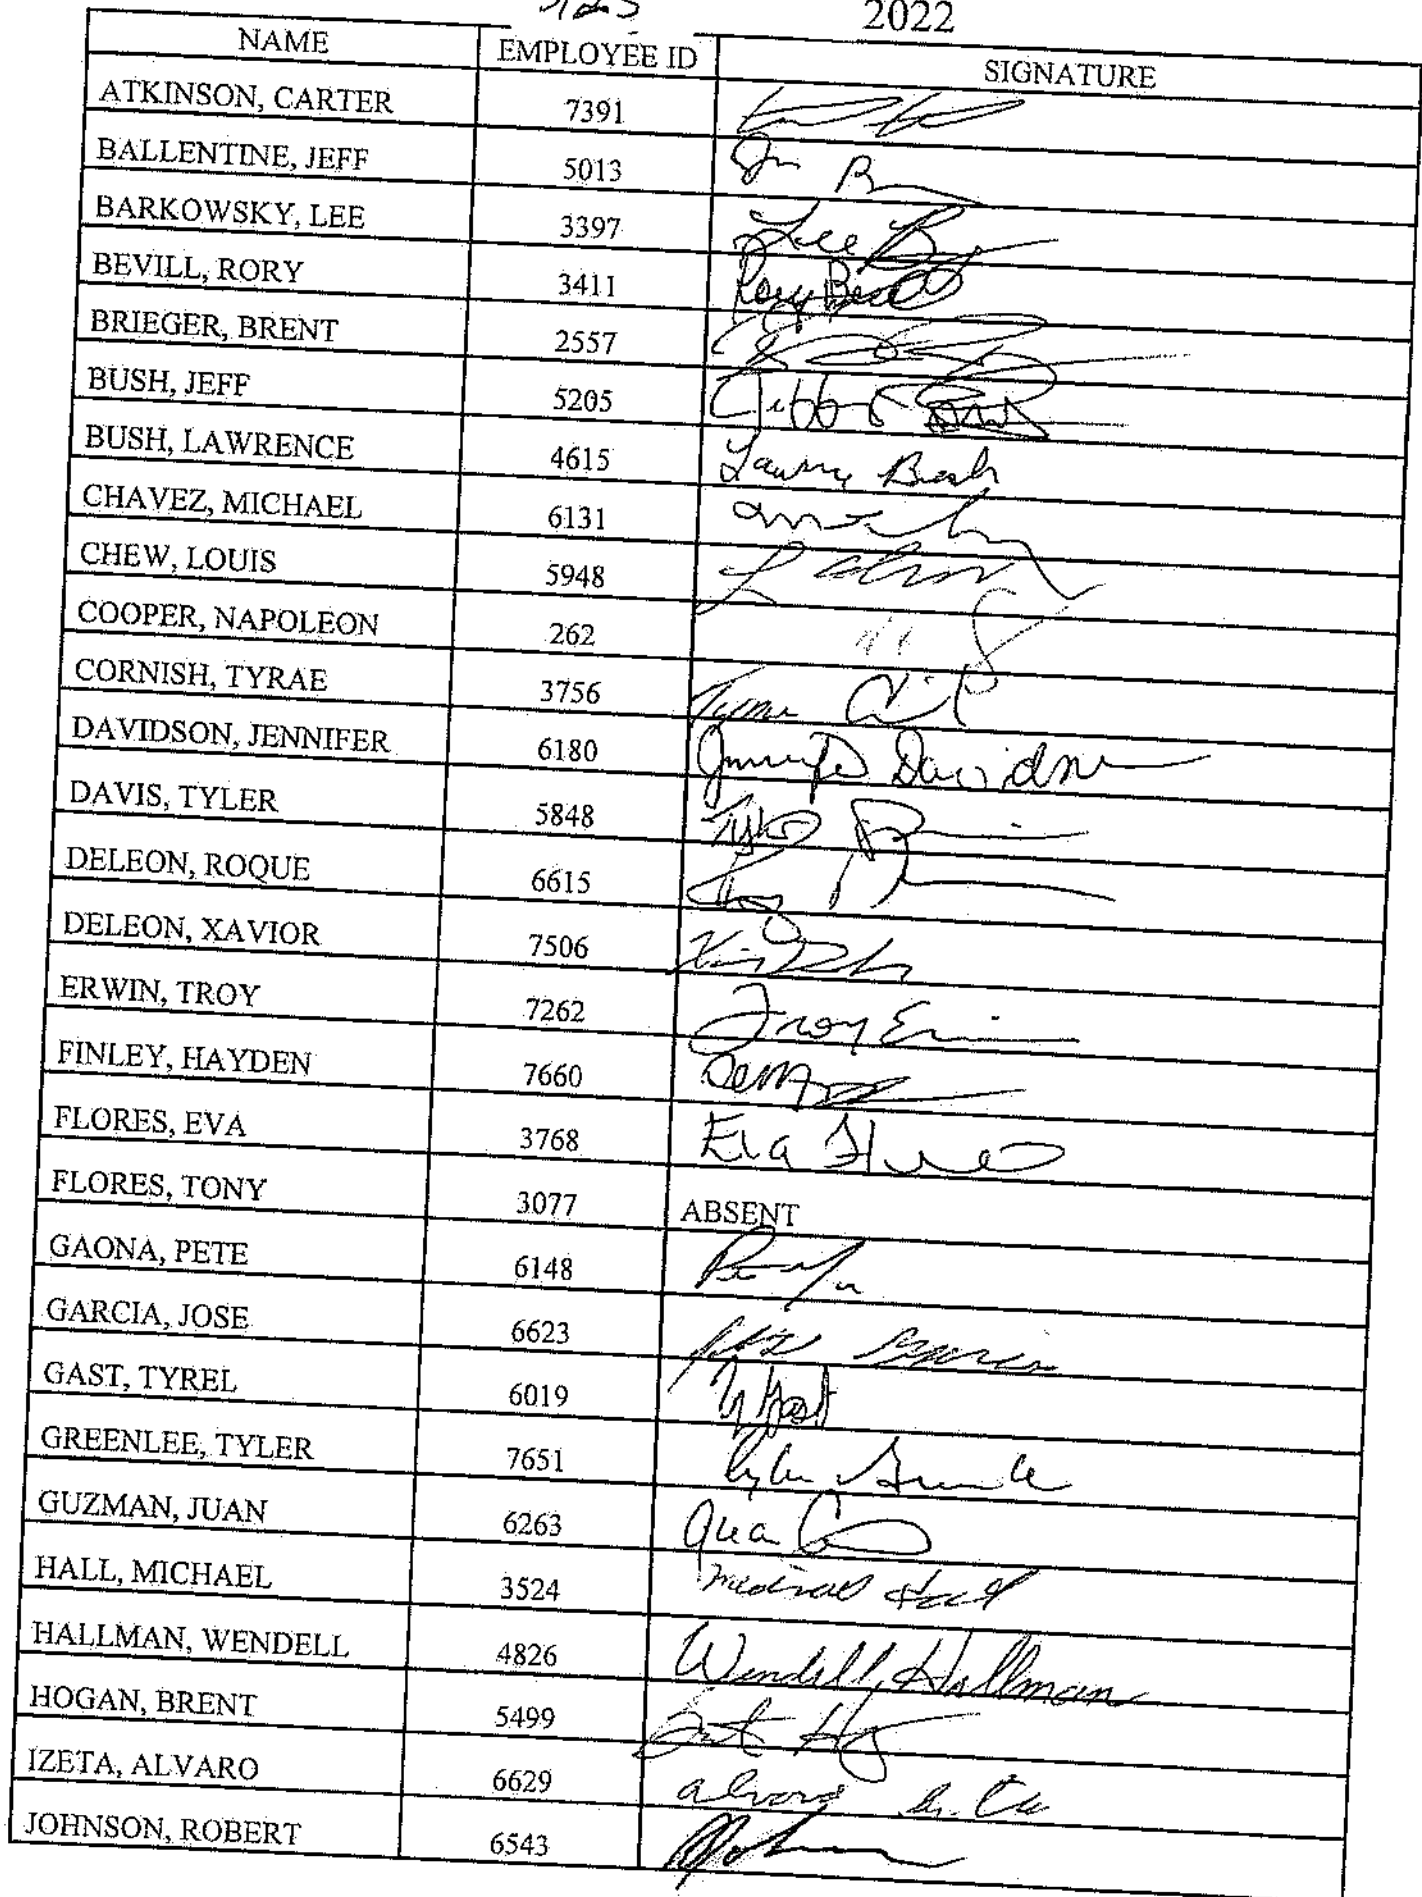 2022
NAME EMPLOYEE ID SIGNATURE
ATKINSON, CARTER 7391
BALLENTINE, JEFF 5013
BARKOWSKY, LEE 3397 Lee
BEVILL, RORY 3411 Rory
BRIEGER, BRENT 2557
BUSH, JEFF 5205
BUSH, LAWRENCE 4615 Bush
CHAVEZ, MICHAEL 6131
CHEW, LOUIS 5948
COOPER, NAPOLEON 262
CORNISH, TYRAE 3756
DAVIDSON, JENNIFER 6180 Jennifer Davidson
DAVIS, TYLER 5848
DELEON, ROQUE 6615
DELEON, XAVIOR 7506
ERWIN, TROY 7262 Troy
FINLEY, HAYDEN 7660
FLORES, EVA 3768 Eva
FLORES, TONY 3077 ABSENT
GAONA, PETE 6148
GARCIA, JOSE 6623
GAST, TYREL 6019 Ty Gast
GREENLEE, TYLER 7651
GUZMAN, JUAN 6263
HALL, MICHAEL 3524 Michael Hall
HALLMAN, WENDELL 4826 Wendell Hallman
HOGAN, BRENT 5499
IZETA, ALVARO 6629 alvaro
JOHNSON, ROBERT 6543